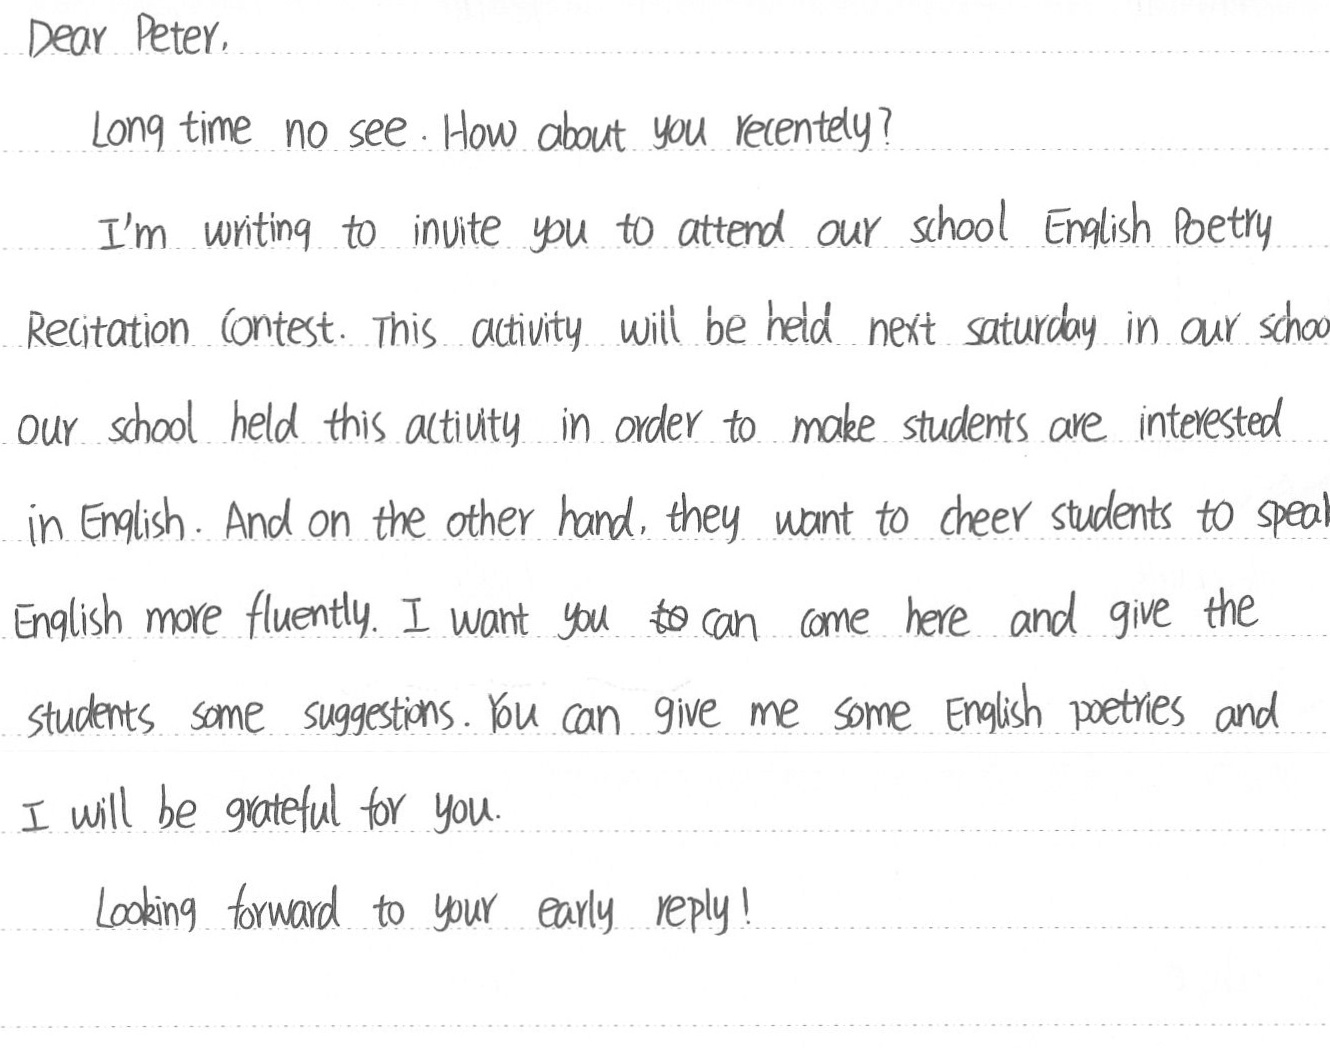 Dear Peter.
Long time no see. How about you recentely?
I'm writing to invite you to attend our school English Poetry
Recitation Contest. This activity will be held next saturday in our schoo
our school held this activity in order to make students are interested
in English. And on the other hand, they want to cheer students to speak
English more fluently. I want you to can come here and give the
students some suggestions. You can give me some English poetries and
I will be grateful for you.
Looking forward to your early reply!